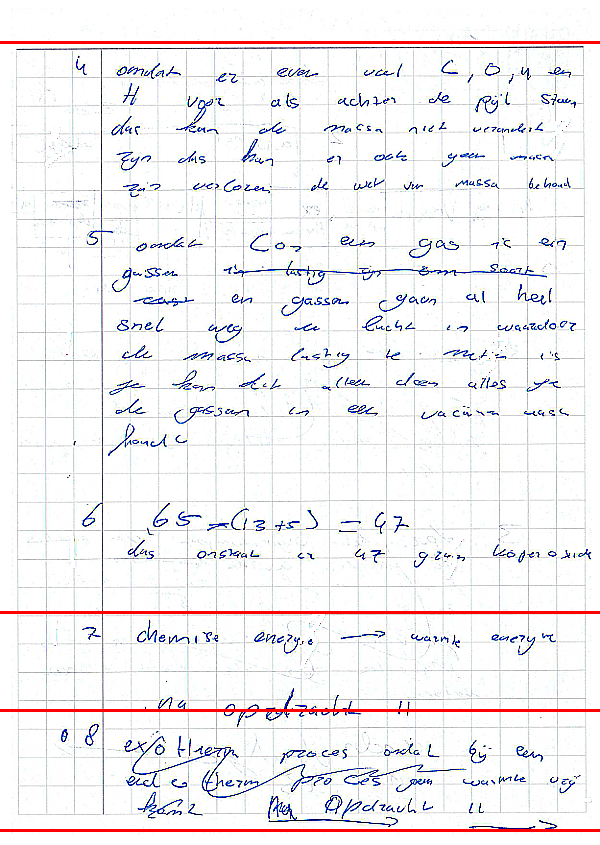 4 omdat er even veel C, O, H en
H voor als achter de pijl staan
dus kan de massa niet verandert
zijn dus kan er ook geen massa
zijn verloren de wet van massa behoud
5 omdat Co2 een gas is en
gassen
en gassen gaan al heel
snel weg de lucht in waardoor
de massa lastig te meten is
je kan dit alleen doen alles je
de gassen in een vacüm
houd
6 65 - (13 + 5) = 47
dus onstaat er 47 gram koperoxide
7 chemise energie → warmte energie
na opdracht 11
8 exotherm proces omdat bij een
endotherm proces geen warmte vrij
komt Na Opdracht 11